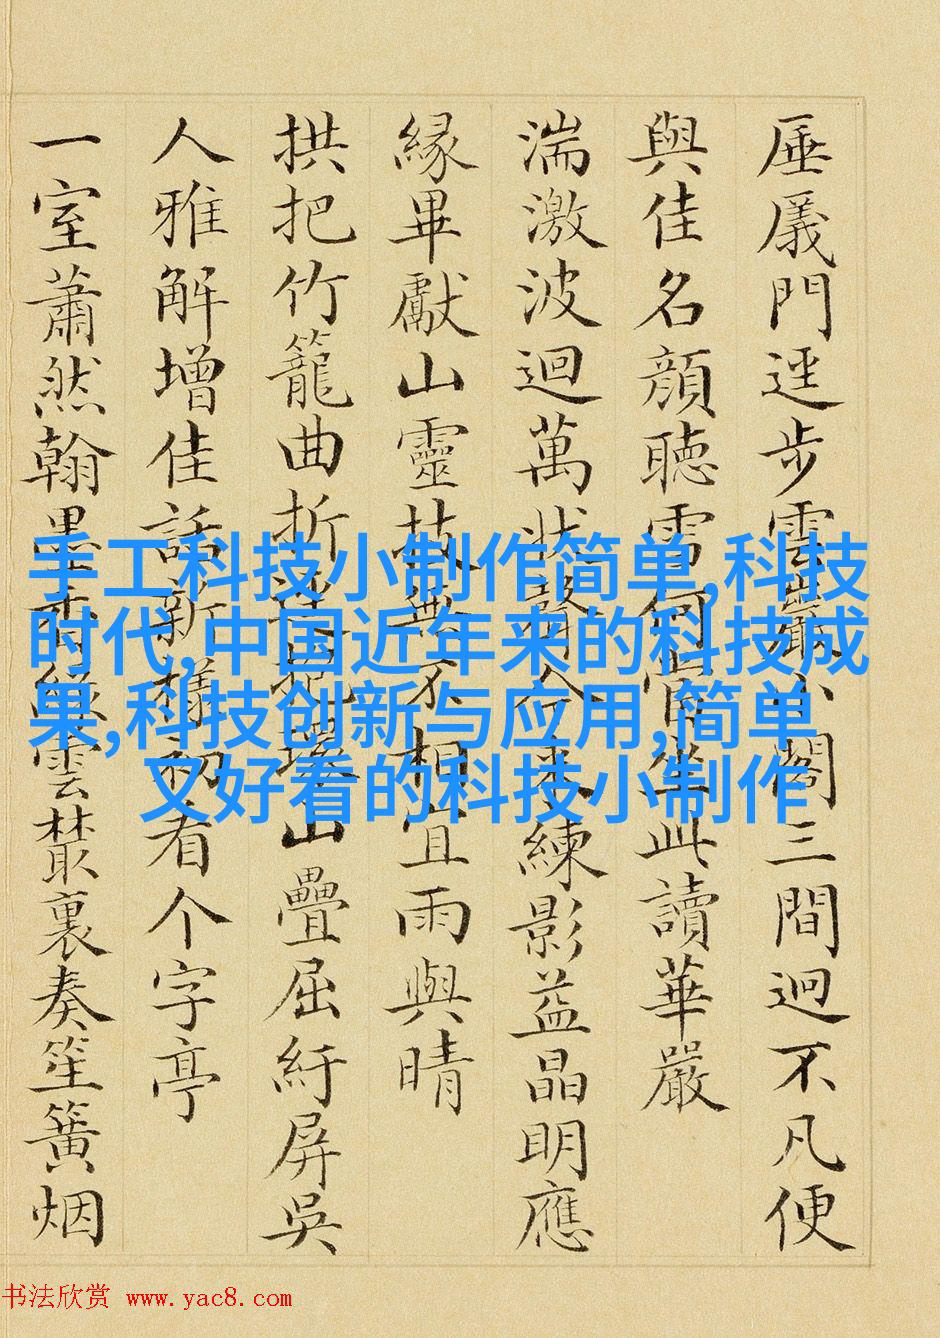 厜㕒門逕步雲巖小閣三間迥不凡便
與佳名顏聽雪何宵坐此讀華嚴
湍激波迴萬狀入來練影益晶明應
緣畢獻山靈技無不相宜雨與晴
拱把竹籠曲折山疊屈紆屏吳
人雅解增佳話新樣初有个字亭
一室蕭然翰墨香綠雲叢裏奏笙簧烟
手工科技小制作简单,科技
时代,中国近年来的科技成
果,科技创新与应用,简单
又好看的科技小制作
书法欣赏 www.yac8.com